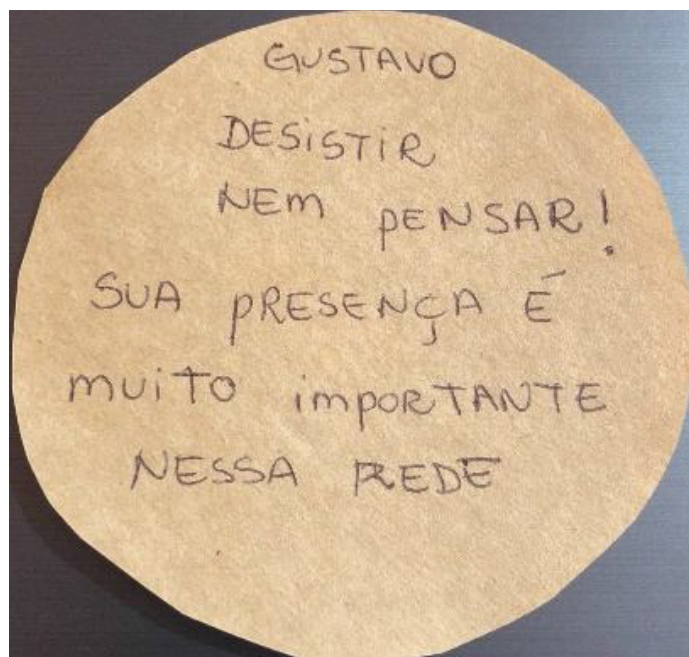 GUSTAVO
DESISTIR
NEM PENSAR!
SUA PRESENÇA É
MUITO IMPORTANTE
NESSA REDE